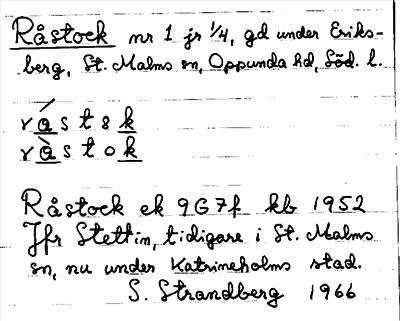 Råstock nr 1 jr 1/4, gd under Eriks-
berg, St. Malms sn, Oppunda hd, Söd. l.
rá̱st8ḵ
rà̱stoḵ
Råstock ek 9G7f kb 1952
Jfr Stettin, tidigare i St. Malms
sn, nu under Katrineholms stad.
S. Strandberg 1966